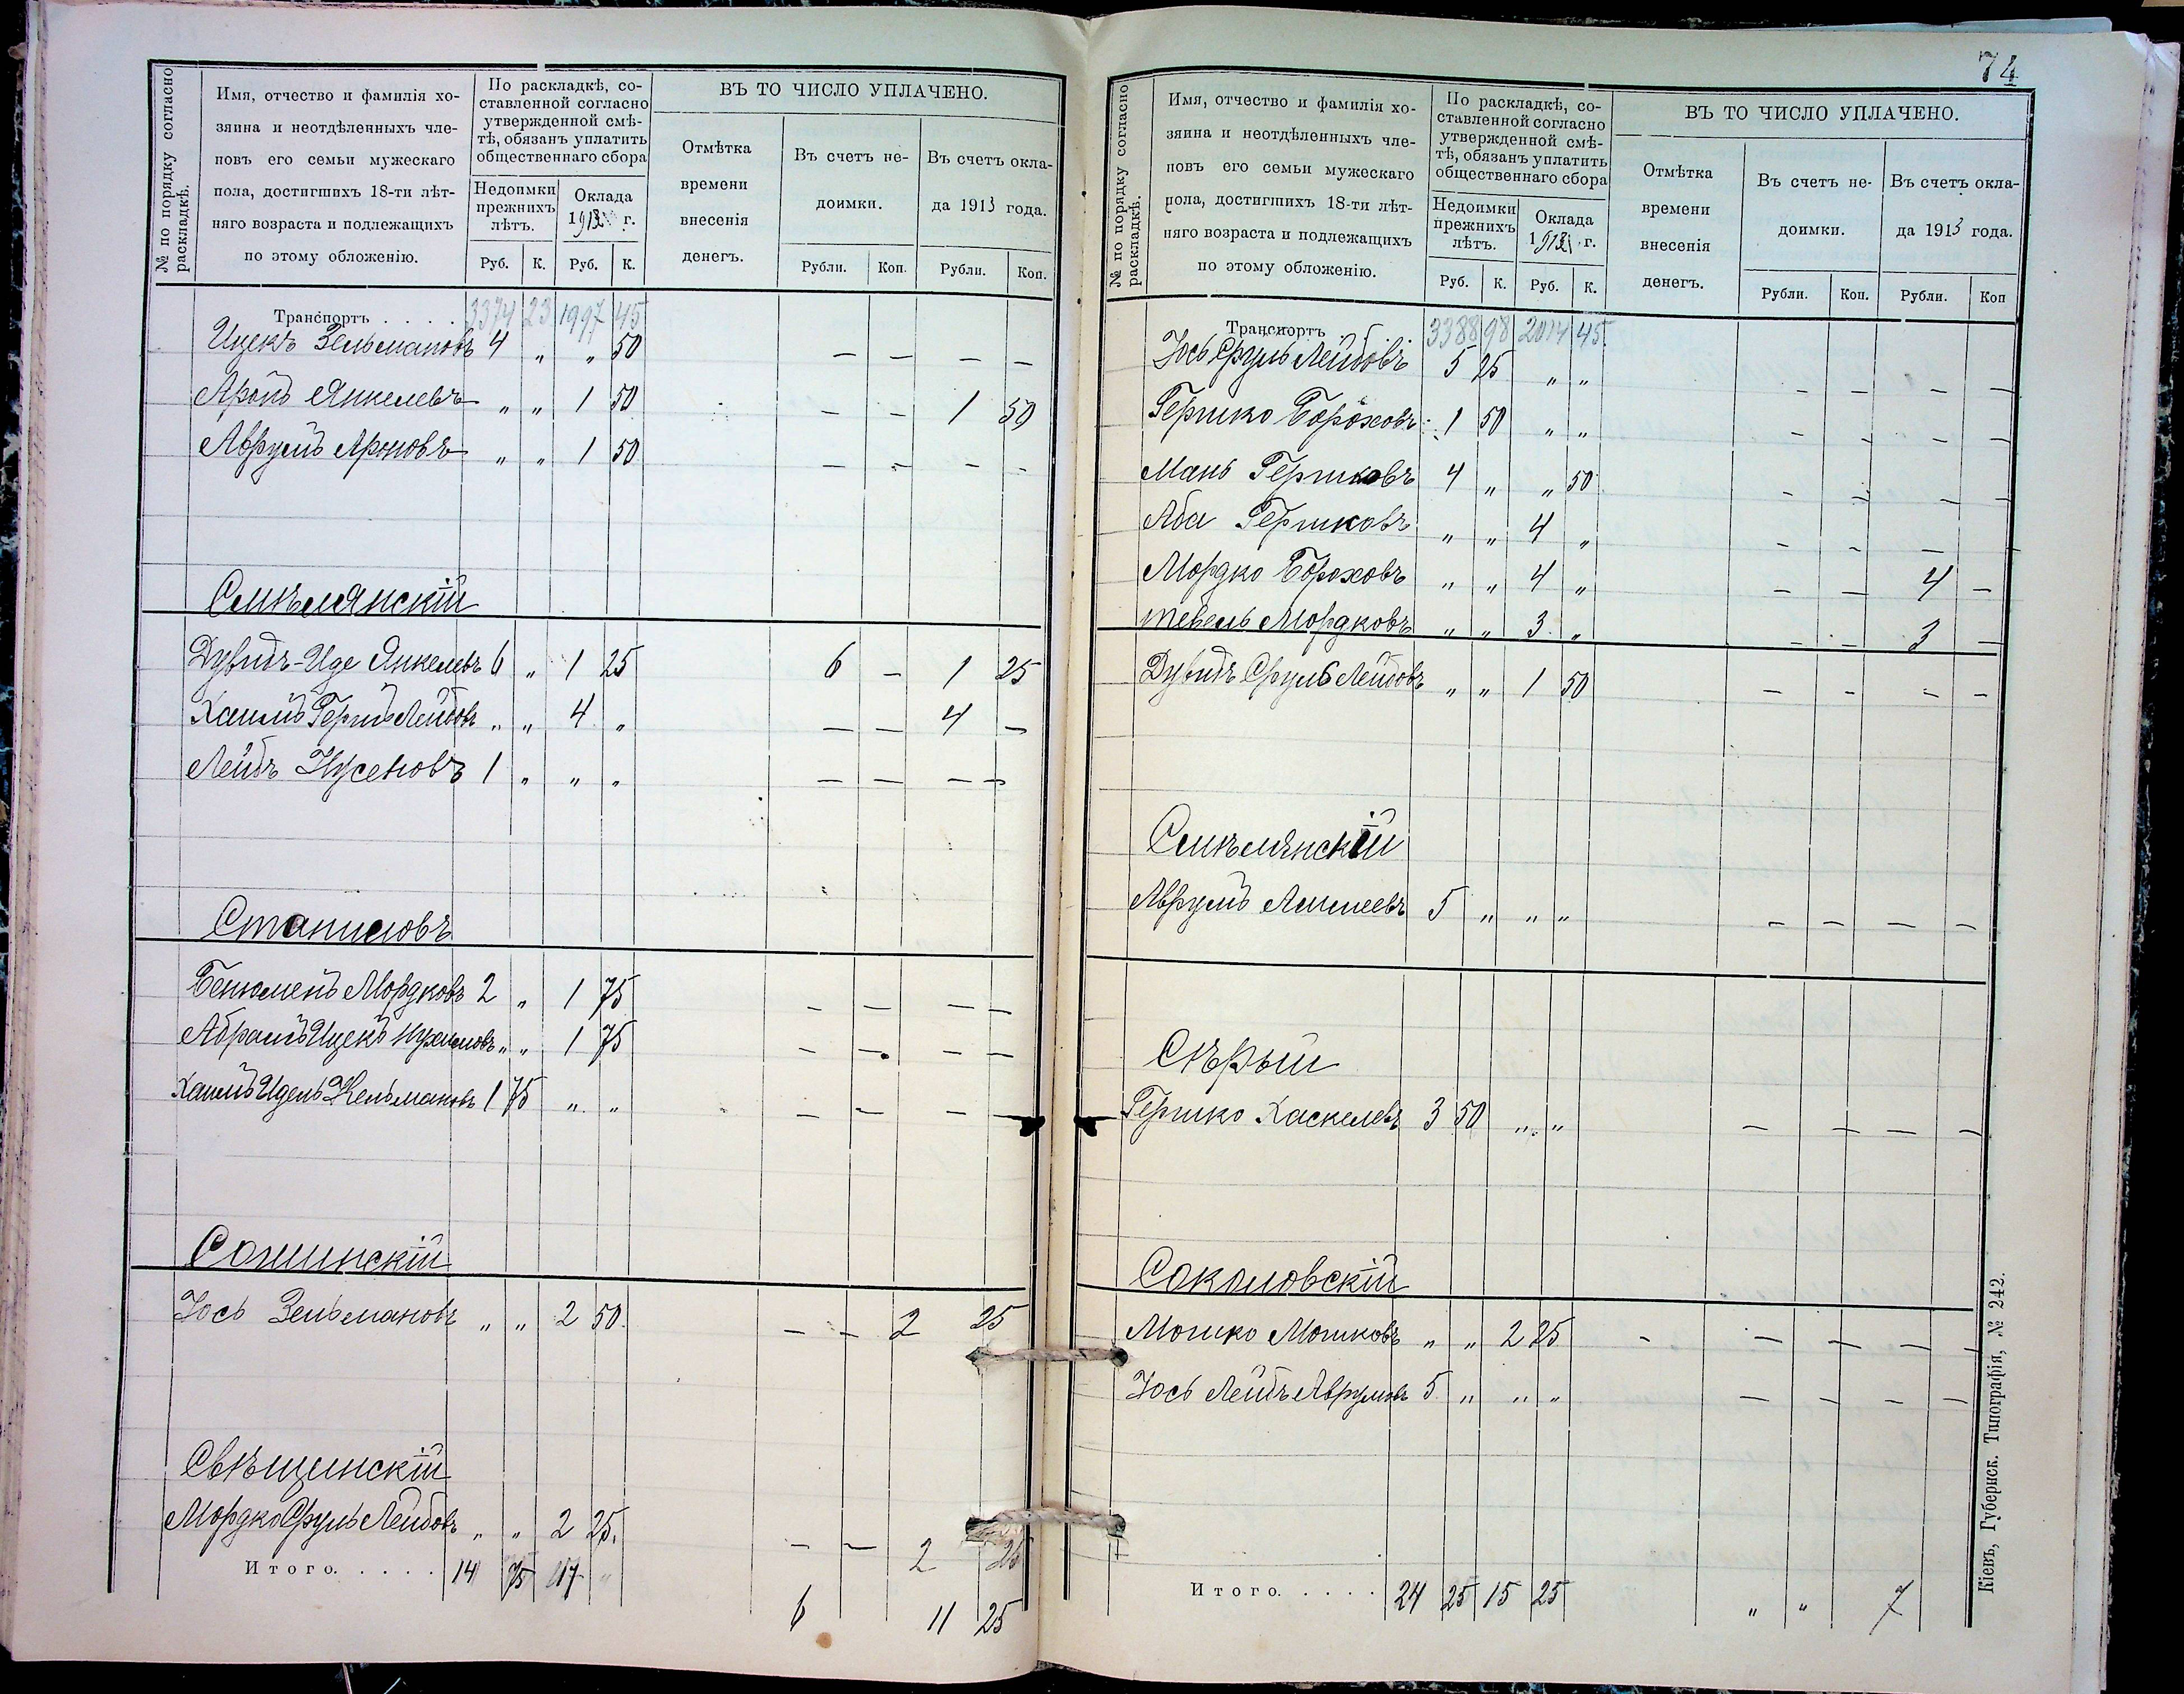 № по порядку согласно раскладкѣ.
Имя, отчество и фамилія хо-
зяина и неотдѣленныхъ чле-
новъ его семьи мужескаго
пола, достигшихъ 18-ти лѣт-
няго возраста и подлежащихъ
по этому обложенію.
По раскладкѣ, со-
ставленной согласно
утвержденной смѣ-
тѣ, обязанъ уплатить
общественнаго сбора
Недоимки прежнихъ лѣтъ.
Оклада 1913 г.
Руб. К. Руб. К.
ВЪ ТО ЧИСЛО УПЛАЧЕНО.
Отмѣтка времени внесенія денегъ.
Въ счетъ не-
доимки.
Въ счетъ окла-
да 1913 года.
Рубли. Коп. Рубли. Коп.
Транспортъ . . . . 3374 23 1997 45
Ицекъ Зельмановъ 4 „ „ 50 — — — —
Аронъ Янкелевъ „ „ 1 50 — — 1 50
Аврумъ Ароновъ „ „ 1 50 — — — —
Смѣлянскій
Дувидъ-Иде Янкелевъ 6 „ 1 25 6 — 1 25
Хаимъ Гершъ Лейбовъ „ „ 4 „ — — 4 —
Лейбъ Нусеновъ 1 „ „ „ — — — —
Станиловъ
Бенюменъ Мордковъ 2 „ 1 75 — — — —
Абрамъ Ицекъ Нухимовъ „ „ 1 75 — — — —
Хаимъ Идель Кельмановъ 1 75 „ „ — — — —
Сошинскій
Іось Зельмановъ „ „ 2 50 — — 2 25
Свѣщинскій
Мордко Сруль Лейбовъ „ „ 2 25 — — 2 25
Итого. . . . . 14 75 17 „
6 11 25
74
№ по порядку согласно раскладкѣ.
Имя, отчество и фамилія хо-
зяина и неотдѣленныхъ чле-
новъ его семьи мужескаго
пола, достигшихъ 18-ти лѣт-
няго возраста и подлежащихъ
по этому обложенію.
По раскладкѣ, со-
ставленной согласно
утвержденной смѣ-
тѣ, обязанъ уплатить
общественнаго сбора
Недоимки прежнихъ лѣтъ.
Оклада 1913 г.
Руб. К. Руб. К.
ВЪ ТО ЧИСЛО УПЛАЧЕНО.
Отмѣтка времени внесенія денегъ.
Въ счетъ не-
доимки.
Въ счетъ окла-
да 1913 года.
Рубли. Коп. Рубли. Коп
Транспортъ 3388 98 2014 45
Іось Сруль Лейбовъ 5 25 „ „ — — — —
Гершко Бороховъ 1 50 „ „ — — — —
Мань Гершковъ 4 „ „ 50 — — — —
Аба Гершковъ „ „ 4 „ — — — —
Мордко Бороховъ „ „ 4 „ — — 4 —
Тевель Мордковъ „ „ 3 „ — — 3 —
Дувидъ Сруль Лейбовъ „ „ 1 50 — — — —
Смѣлянскій
Аврумъ 5 „ „ „ — — — —
Сѣрый
Гершко Хаскелевъ 3 50 „ „ — — — —
Соколовскій
Мошко Мошковъ „ „ 2 25 — — — — —
Іось Лейбъ Аврумовъ 5 „ „ „ — — — —
Итого. . . . . 24 25 15 25 „ „ 7
Кіевъ, Губернск. Типографія, № 242.